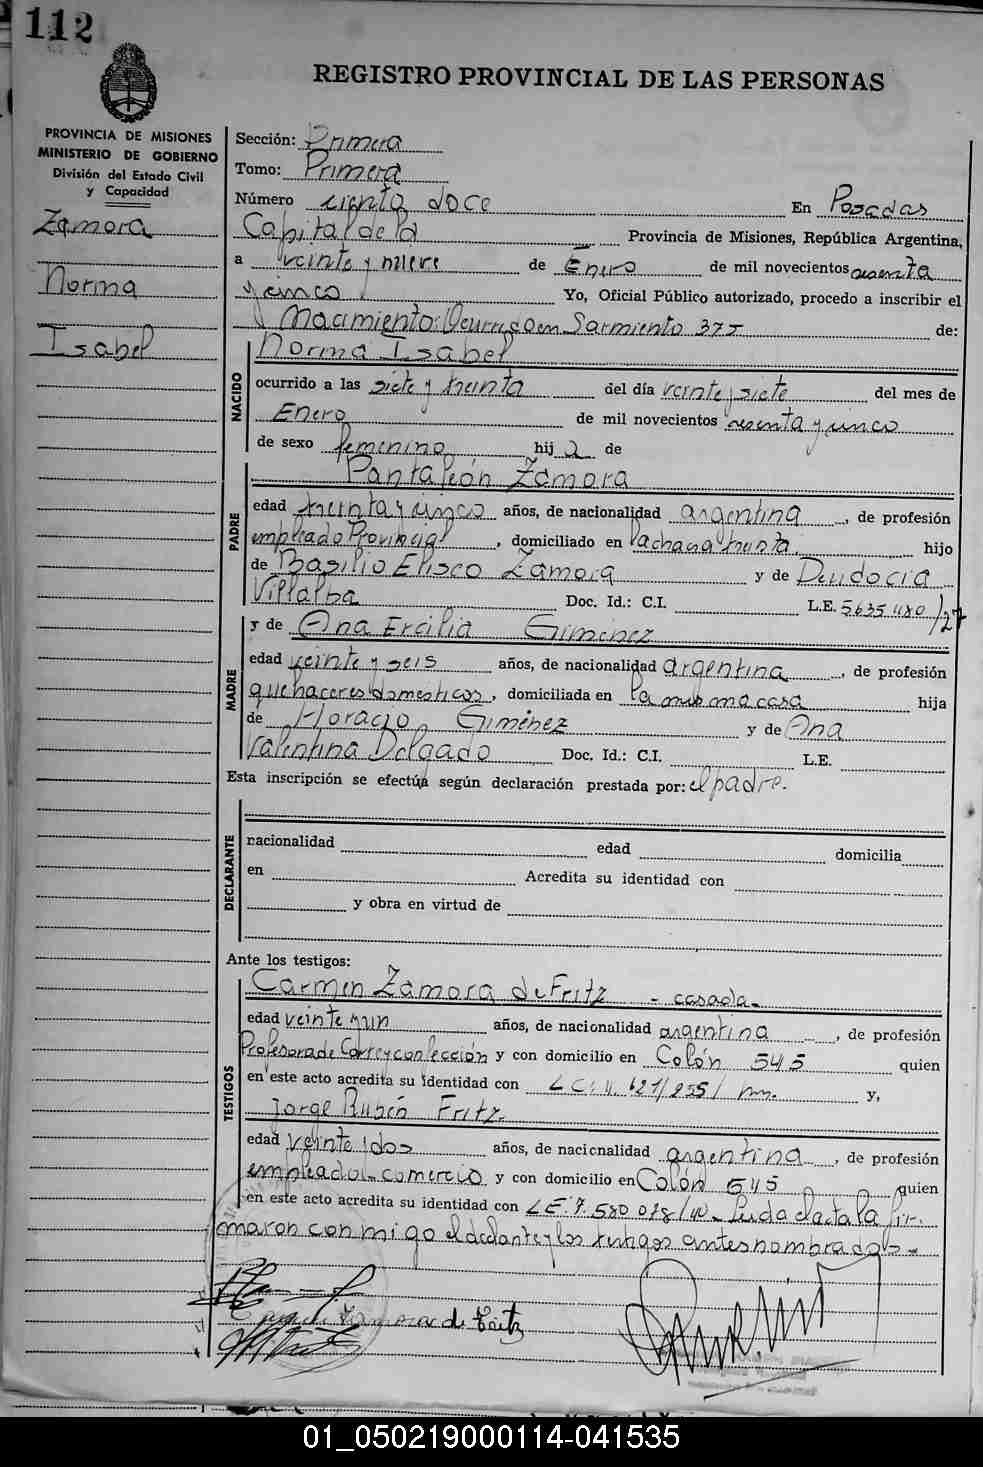 112
REGISTRO PROVINCIAL DE LAS PERSONAS
PROVINCIA DE MISIONES
MINISTERIO DE GOBIERNO
División del Estado Civil
y Capacidad
Zamora
Norma
Isabel
Sección: Primera
Tomo: Primera
Número ciento doce En Posadas
Capital de la Provincia de Misiones, República Argentina,
a veinte y nueve de Enero de mil novecientos sesenta
y cinco Yo, Oficial Público autorizado, procedo a inscribir el
Nacimiento: Ocurrido en Sarmiento 375 de:
NACIDO
Norma Isabel
ocurrido a las siete y treinta del día veinte y siete del mes de
Enero de mil novecientos sesenta y cinco
de sexo femenino hija de
PADRE
Pantaleón Zamora
edad treinta y cinco años, de nacionalidad argentina, de profesión
empleado Provincial, domiciliado en la chacra treinta hijo
de Basilio Eliseo Zamora y de Deudocia
Villalba Doc. Id.: C.I. L.E. 5635480/27
MADRE
y de Ana Ercilia Giménez
edad veinte y seis años, de nacionalidad argentina, de profesión
quehaceres domésticos, domiciliada en la misma casa hija
de Horacio Giménez y de Ana
Valentina Delgado Doc. Id.: C.I. L.E.
Esta inscripción se efectúa según declaración prestada por: el padre.
DECLARANTE
nacionalidad edad domicilia
en Acredita su identidad con
y obra en virtud de
Ante los testigos:
TESTIGOS
Carmen Zamora de Fritz - casada -
edad veinte y un años, de nacionalidad argentina, de profesión
Profesora de Corte y confección y con domicilio en Colón 545 quien
en este acto acredita su identidad con L.C: y,
Jorge Rubén Fritz
edad veinte y dos años, de nacionalidad argentina, de profesión
empleado comercio y con domicilio en Colón 545 quien
en este acto acredita su identidad con L.E. 7.580.078/40 - Leida el acta la fir-
maron conmigo el declarante y los testigos antes nombrados -
Zamora de Fritz
01_050219000114-041535